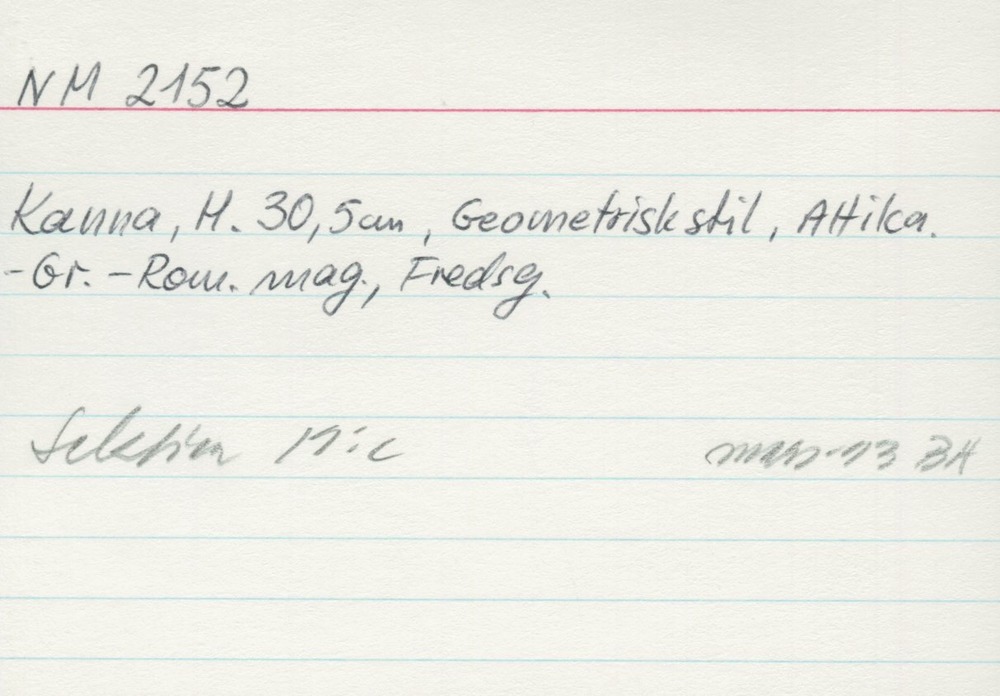 NM 2152
Kanna, H. 30,5cm, Geometrisk stil, Attika.
-Gr. -Rom. mag., Fredsg.
Sektion 17:c
mars-93 BH